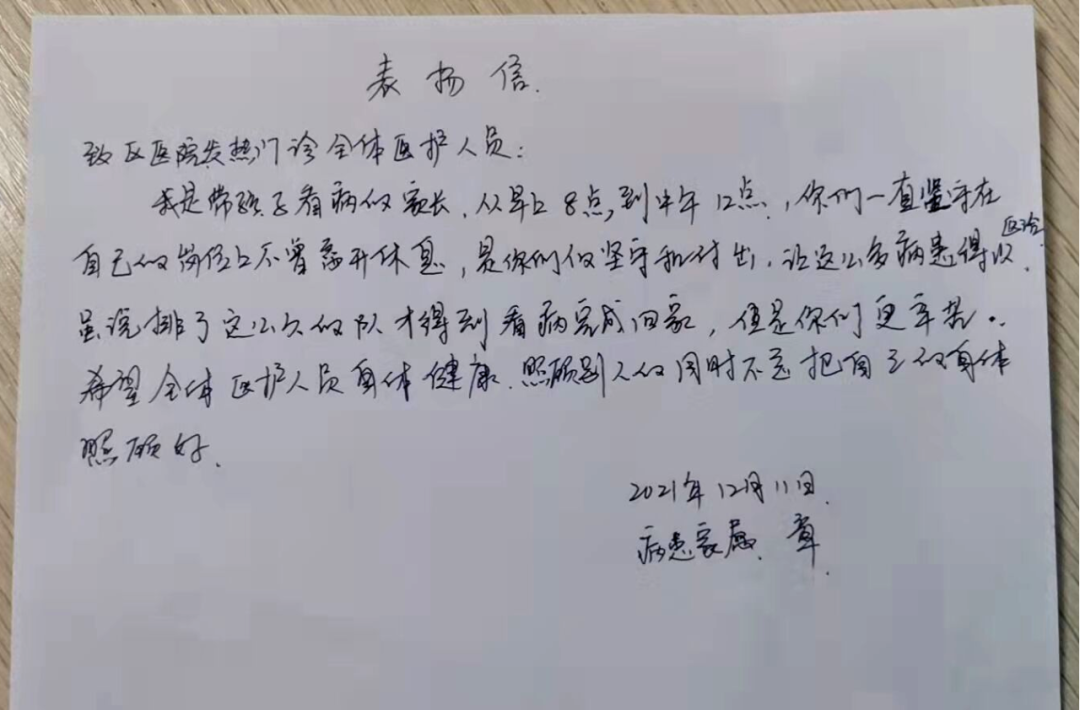 表扬信.
致区医院发热门诊全体医护人员:
我是带孩子看病的家长.从早上8点,到中午12点,你们一直坚守在
自己的岗位上不曾离开休息,是你们的坚守和付出.让这么多病患得以医治.
虽说排了这么久的队才得到看病完成回家,但是你们更辛苦..
希望全体医护人员身体健康.照顾别人的同时不忘把自己的身体
照顾好.
2021年12月11日.
病患家属.章.